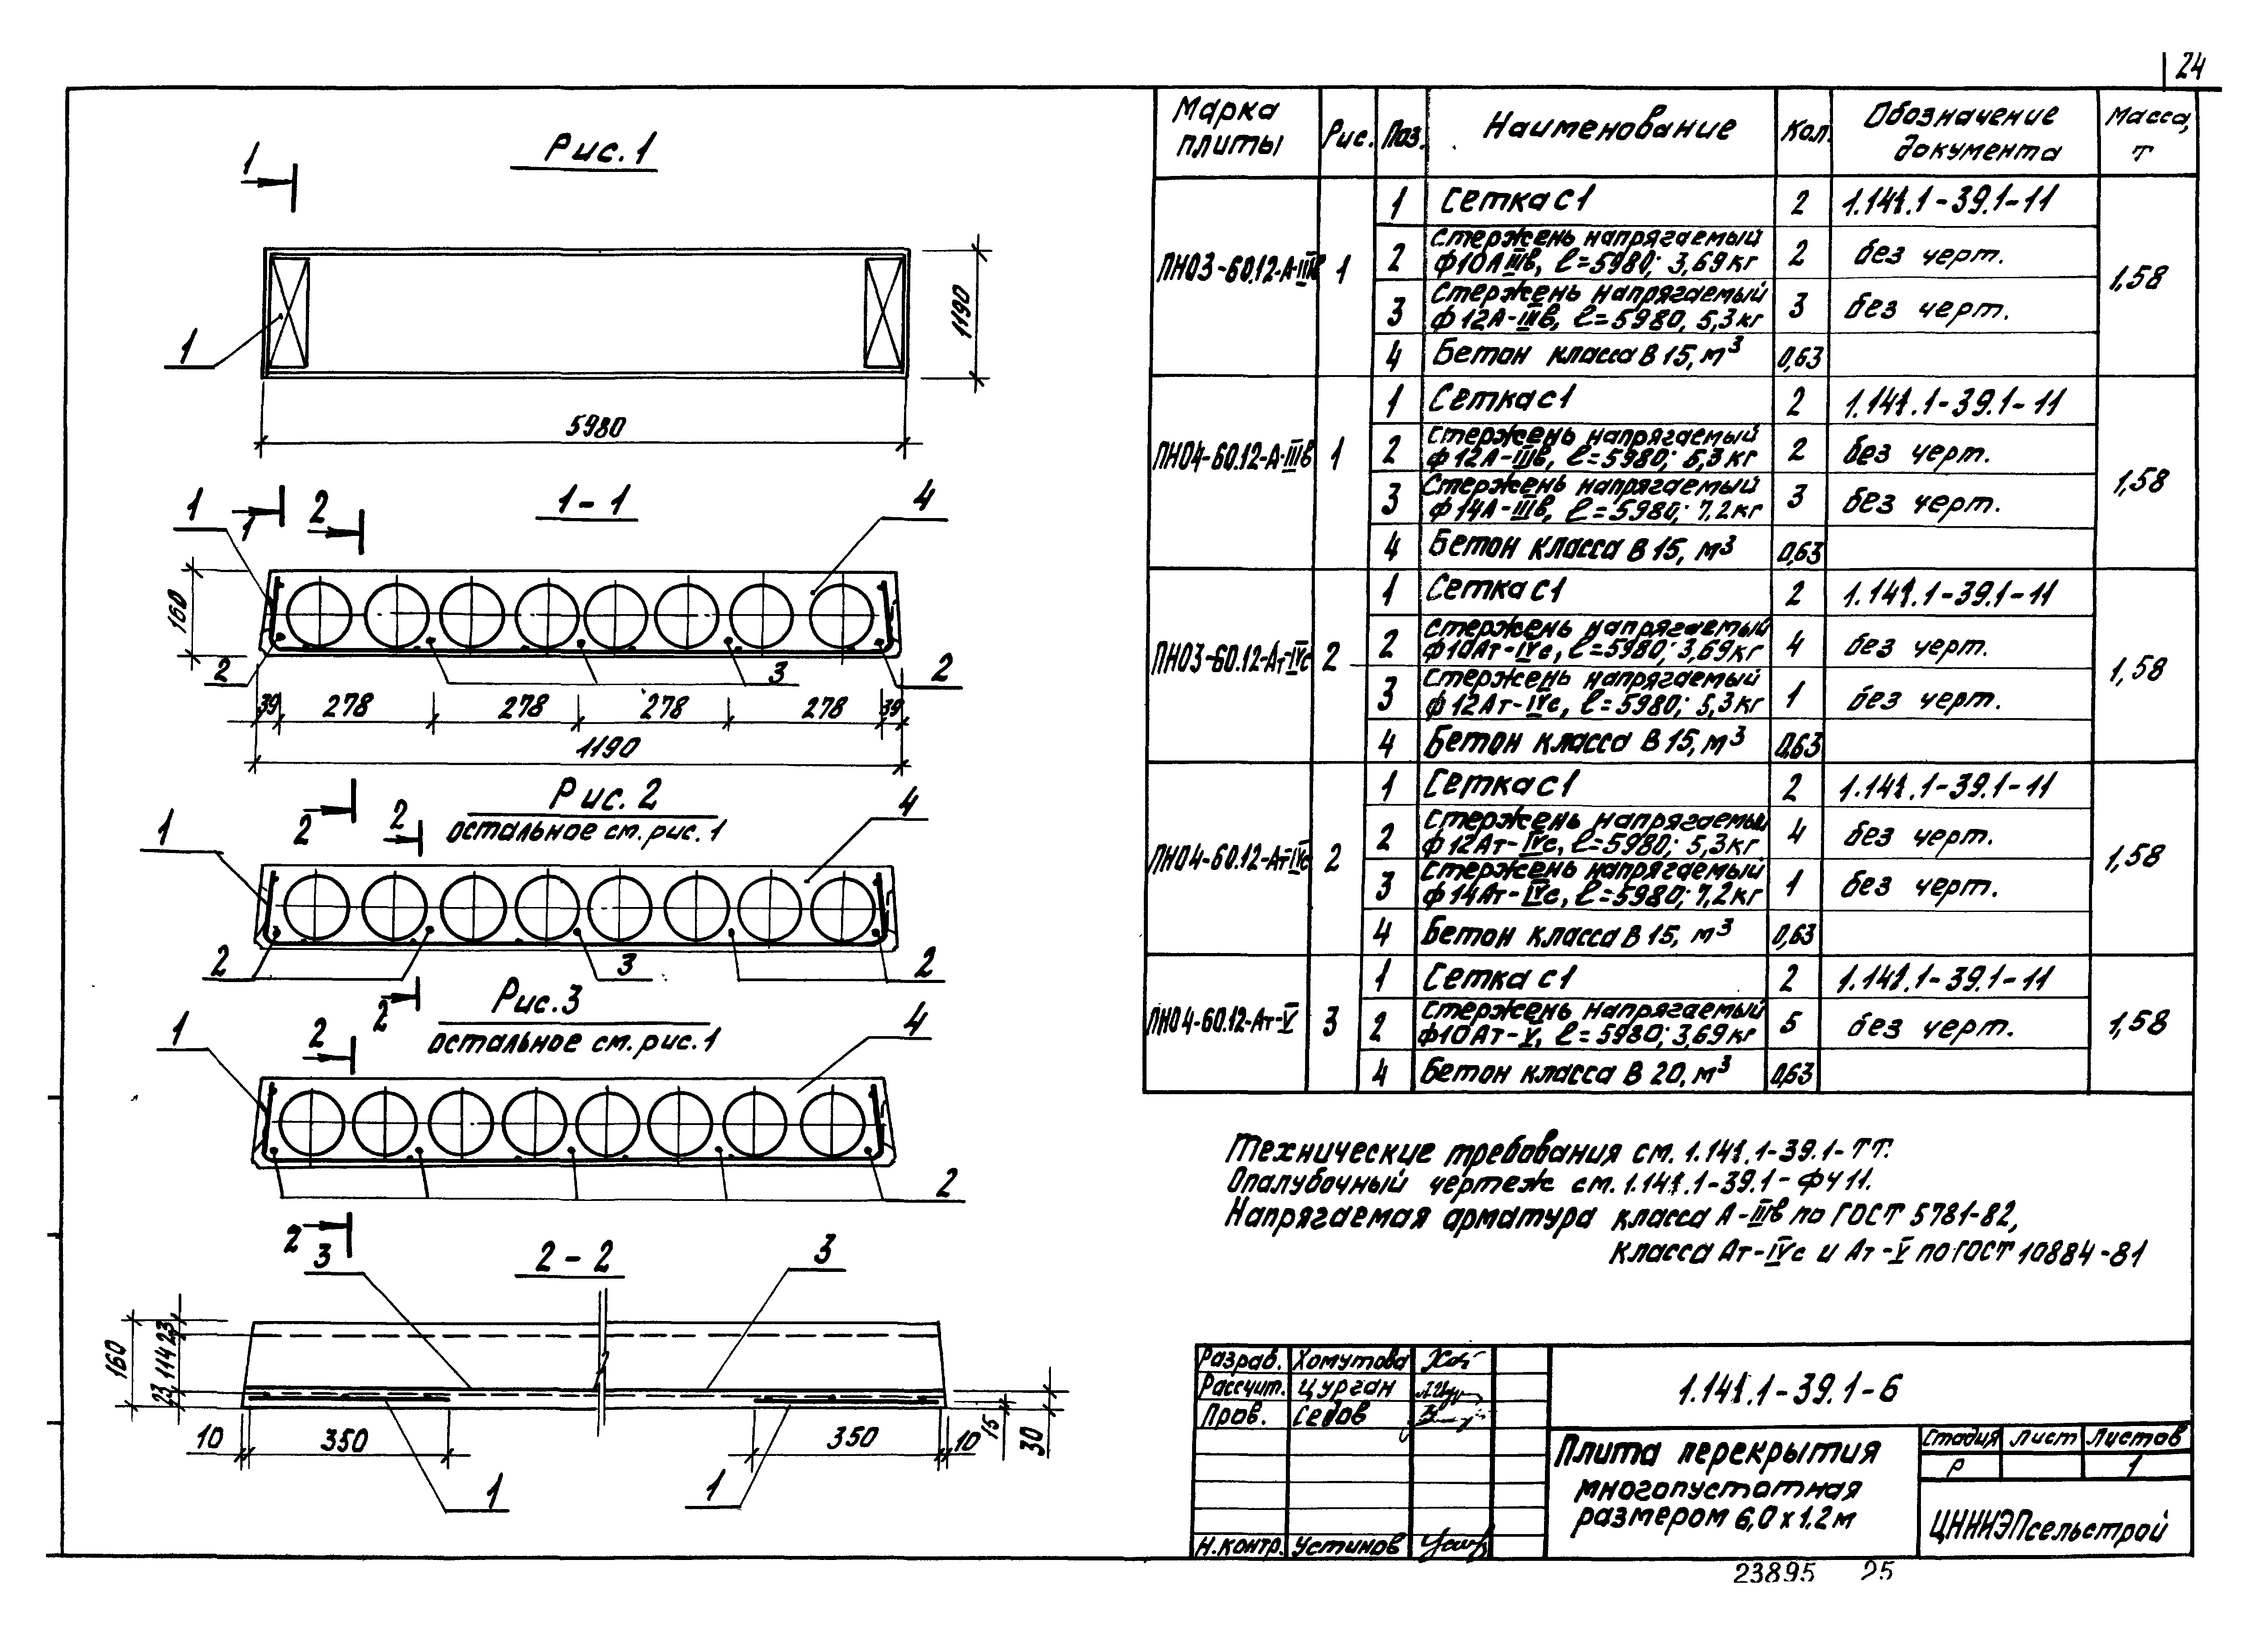 24
Рис. 1
1
1
1190
5980
1-1
1
1
2
4
160
2
3
2
39
278
278
278
278
39
1190
2
Рис. 2
остальное см. рис. 1
1
2
4
2
3
2
2
Рис. 3
остальное см. рис. 1
1
2
4
2
2
2-2
3
3
160
23
114
23
10
350
350
10
15
30
1
1
Марка плиты
Рис.
Поз.
Наименование
Кол.
Обозначение документа
Масса, т
ПНО3-60.12-А-IIIв
1
1,58
1 Сетка С1 2 1.141.1-39.1-11
2 Стержень напрягаемый 2 без черт.
ф10АIIIв, ℓ=5980; 3,69кг
3 Стержень напрягаемый 3 без черт.
ф12А-IIIв, ℓ=5980; 5,3кг
4 Бетон класса В15, м³ 0,63
ПНО4-60.12-А-IIIв
1
1,58
1 Сетка С1 2 1.141.1-39.1-11
2 Стержень напрягаемый 2 без черт.
ф12А-IIIв, ℓ=5980; 5,3кг
3 Стержень напрягаемый 3 без черт.
ф14А-IIIв, ℓ=5980; 7,2кг
4 Бетон класса В15, м³ 0,63
ПНО3-60.12-Ат-IVс
2
1,58
1 Сетка С1 2 1.141.1-39.1-11
2 Стержень напрягаемый 4 без черт.
ф10Ат-IVс, ℓ=5980; 3,69кг
3 Стержень напрягаемый 1 без черт.
ф12Ат-IVс, ℓ=5980; 5,3кг
4 Бетон класса В15, м³ 0,63
ПНО4-60.12-Ат-IVс
2
1,58
1 Сетка С1 2 1.141.1-39.1-11
2 Стержень напрягаемый 4 без черт.
ф12Ат-IVс, ℓ=5980; 5,3кг
3 Стержень напрягаемый 1 без черт.
ф14Ат-IVс, ℓ=5980; 7,2кг
4 Бетон класса В15, м³ 0,63
ПНО4-60.12-Ат-V
3
1,58
1 Сетка С1 2 1.141.1-39.1-11
2 Стержень напрягаемый 5 без черт.
ф10Ат-V, ℓ=5980; 3,69кг
4 Бетон класса В20, м³ 0,63
Технические требования см. 1.141.1-39.1-ТТ.
Опалубочный чертеж см. 1.141.1-39.1-ФЧ11.
Напрягаемая арматура класса А-IIIв по ГОСТ 5781-82,
класса Ат-IVс и Ат-V по ГОСТ 10884-81
Разраб. Хомутова
Рассчит. Цурган
Пров. Седов
Н.контр. Устинов
1.141.1-39.1-6
Плита перекрытия
многопустотная
размером 6,0х1,2м
Стадия Лист Листов
Р 1
ЦНИИЭПсельстрой
23895 25